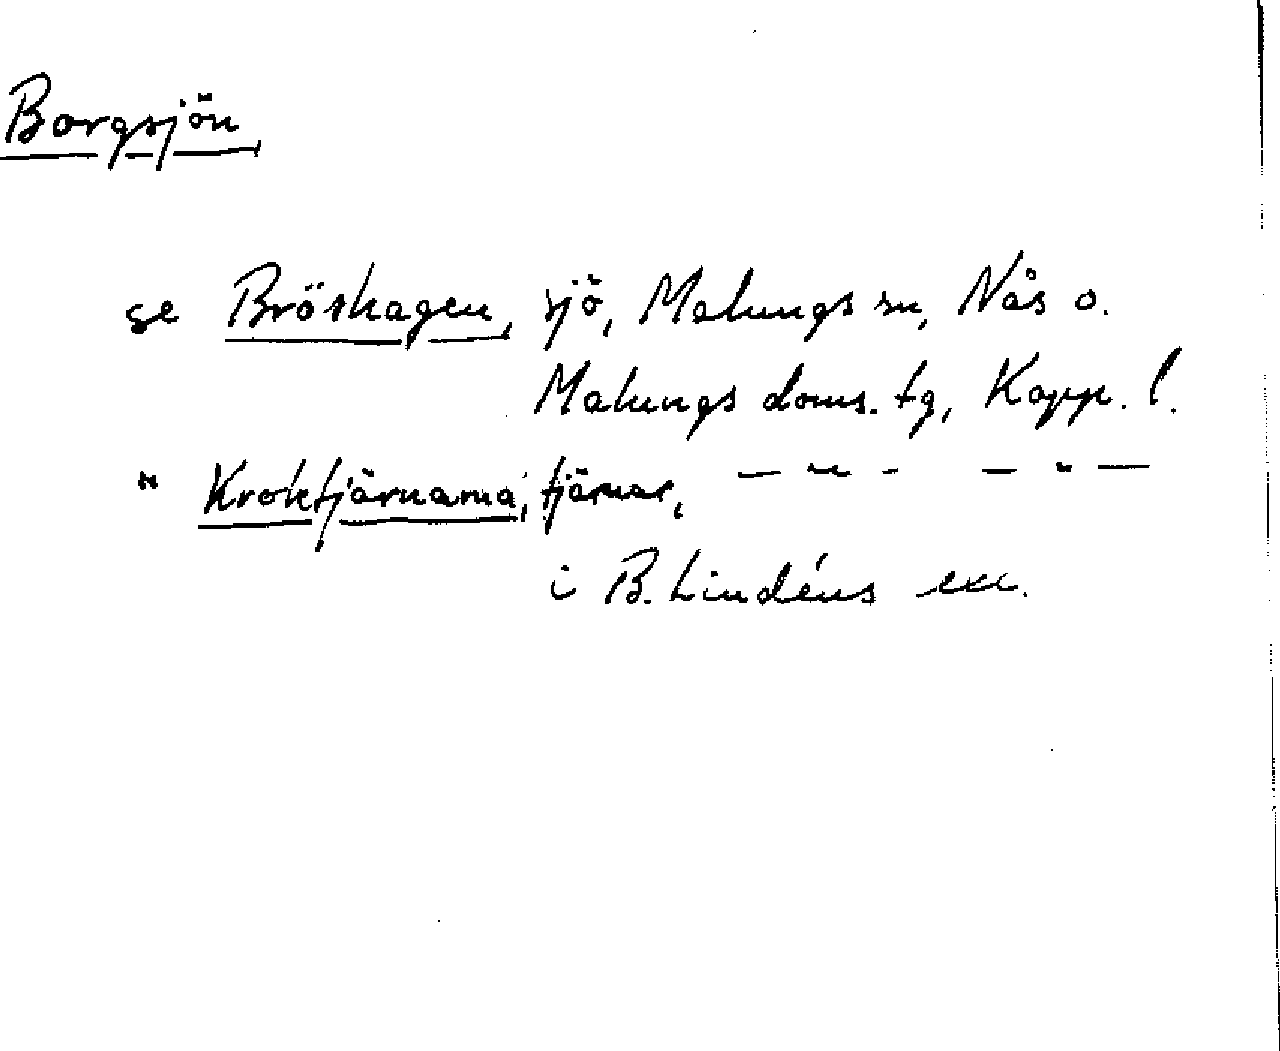 Borgsjön,
se Bröskagen, sjö, Malungs sn, Nås o.
Malungs doms. tg, Kopp. l.
" Kroktjärnarna, tjärnar, — " — — " —
i B. Lindéns exc.